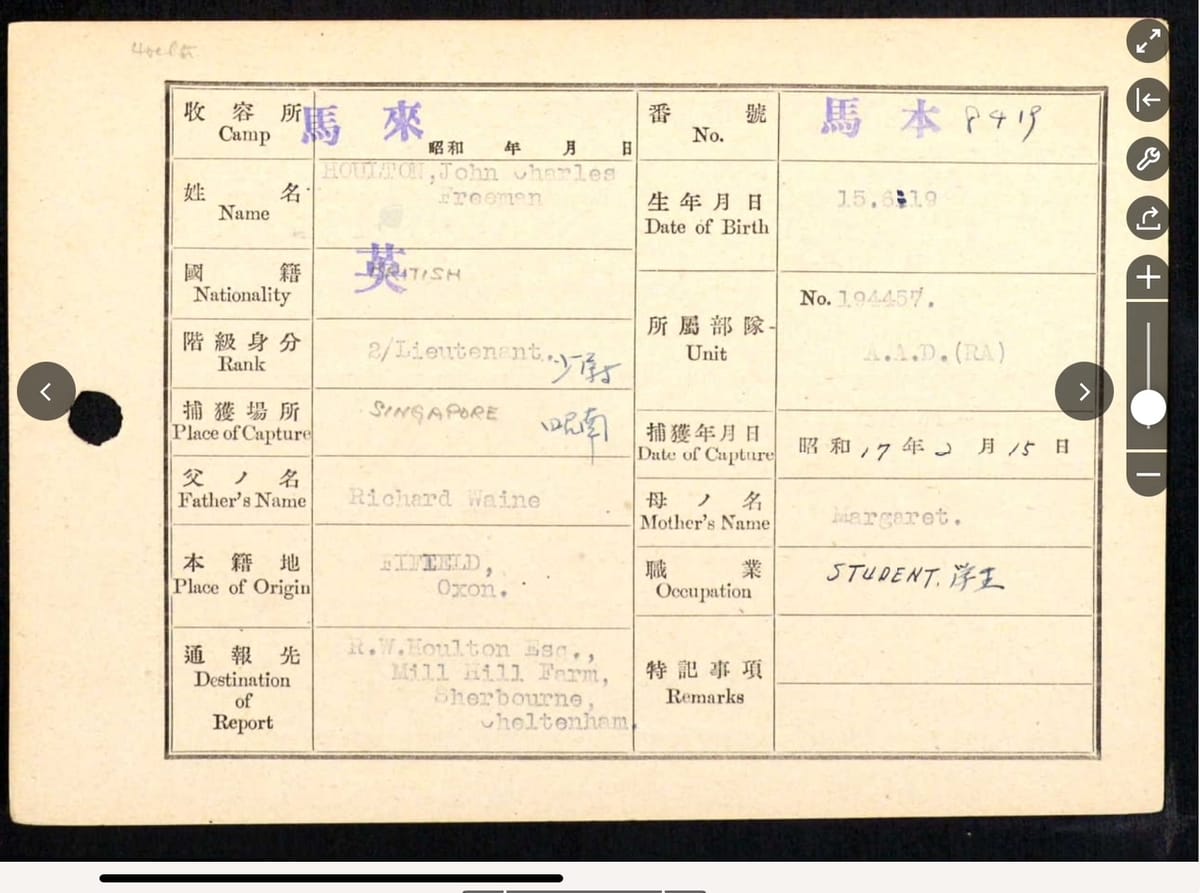 收容所 馬來
Camp
昭和 年 月 日
番號 馬本 8419
No.
姓名 HOULTON,John Charles
Name Freeman
生年月日 15.6.19
Date of Birth
國籍 英 BRITISH
Nationality
階級身分 2/Lieutenant. 少尉
Rank
所屬部隊 No. 194457.
Unit A.A.D.(RA)
捕獲場所 SINGAPORE 昭南
Place of Capture
捕獲年月日 昭和17年2月15日
Date of Capture
父ノ名 Richard Waine
Father's Name
母ノ名 Margaret.
Mother's Name
本籍地 FIFIELD,
Place of Origin Oxon.
職業 STUDENT. 学生
Occupation
通報先 R.W.Houlton Esq.,
Destination Mill Hill Farm,
of Sherbourne,
Report Cheltenham.
特記事項
Remarks